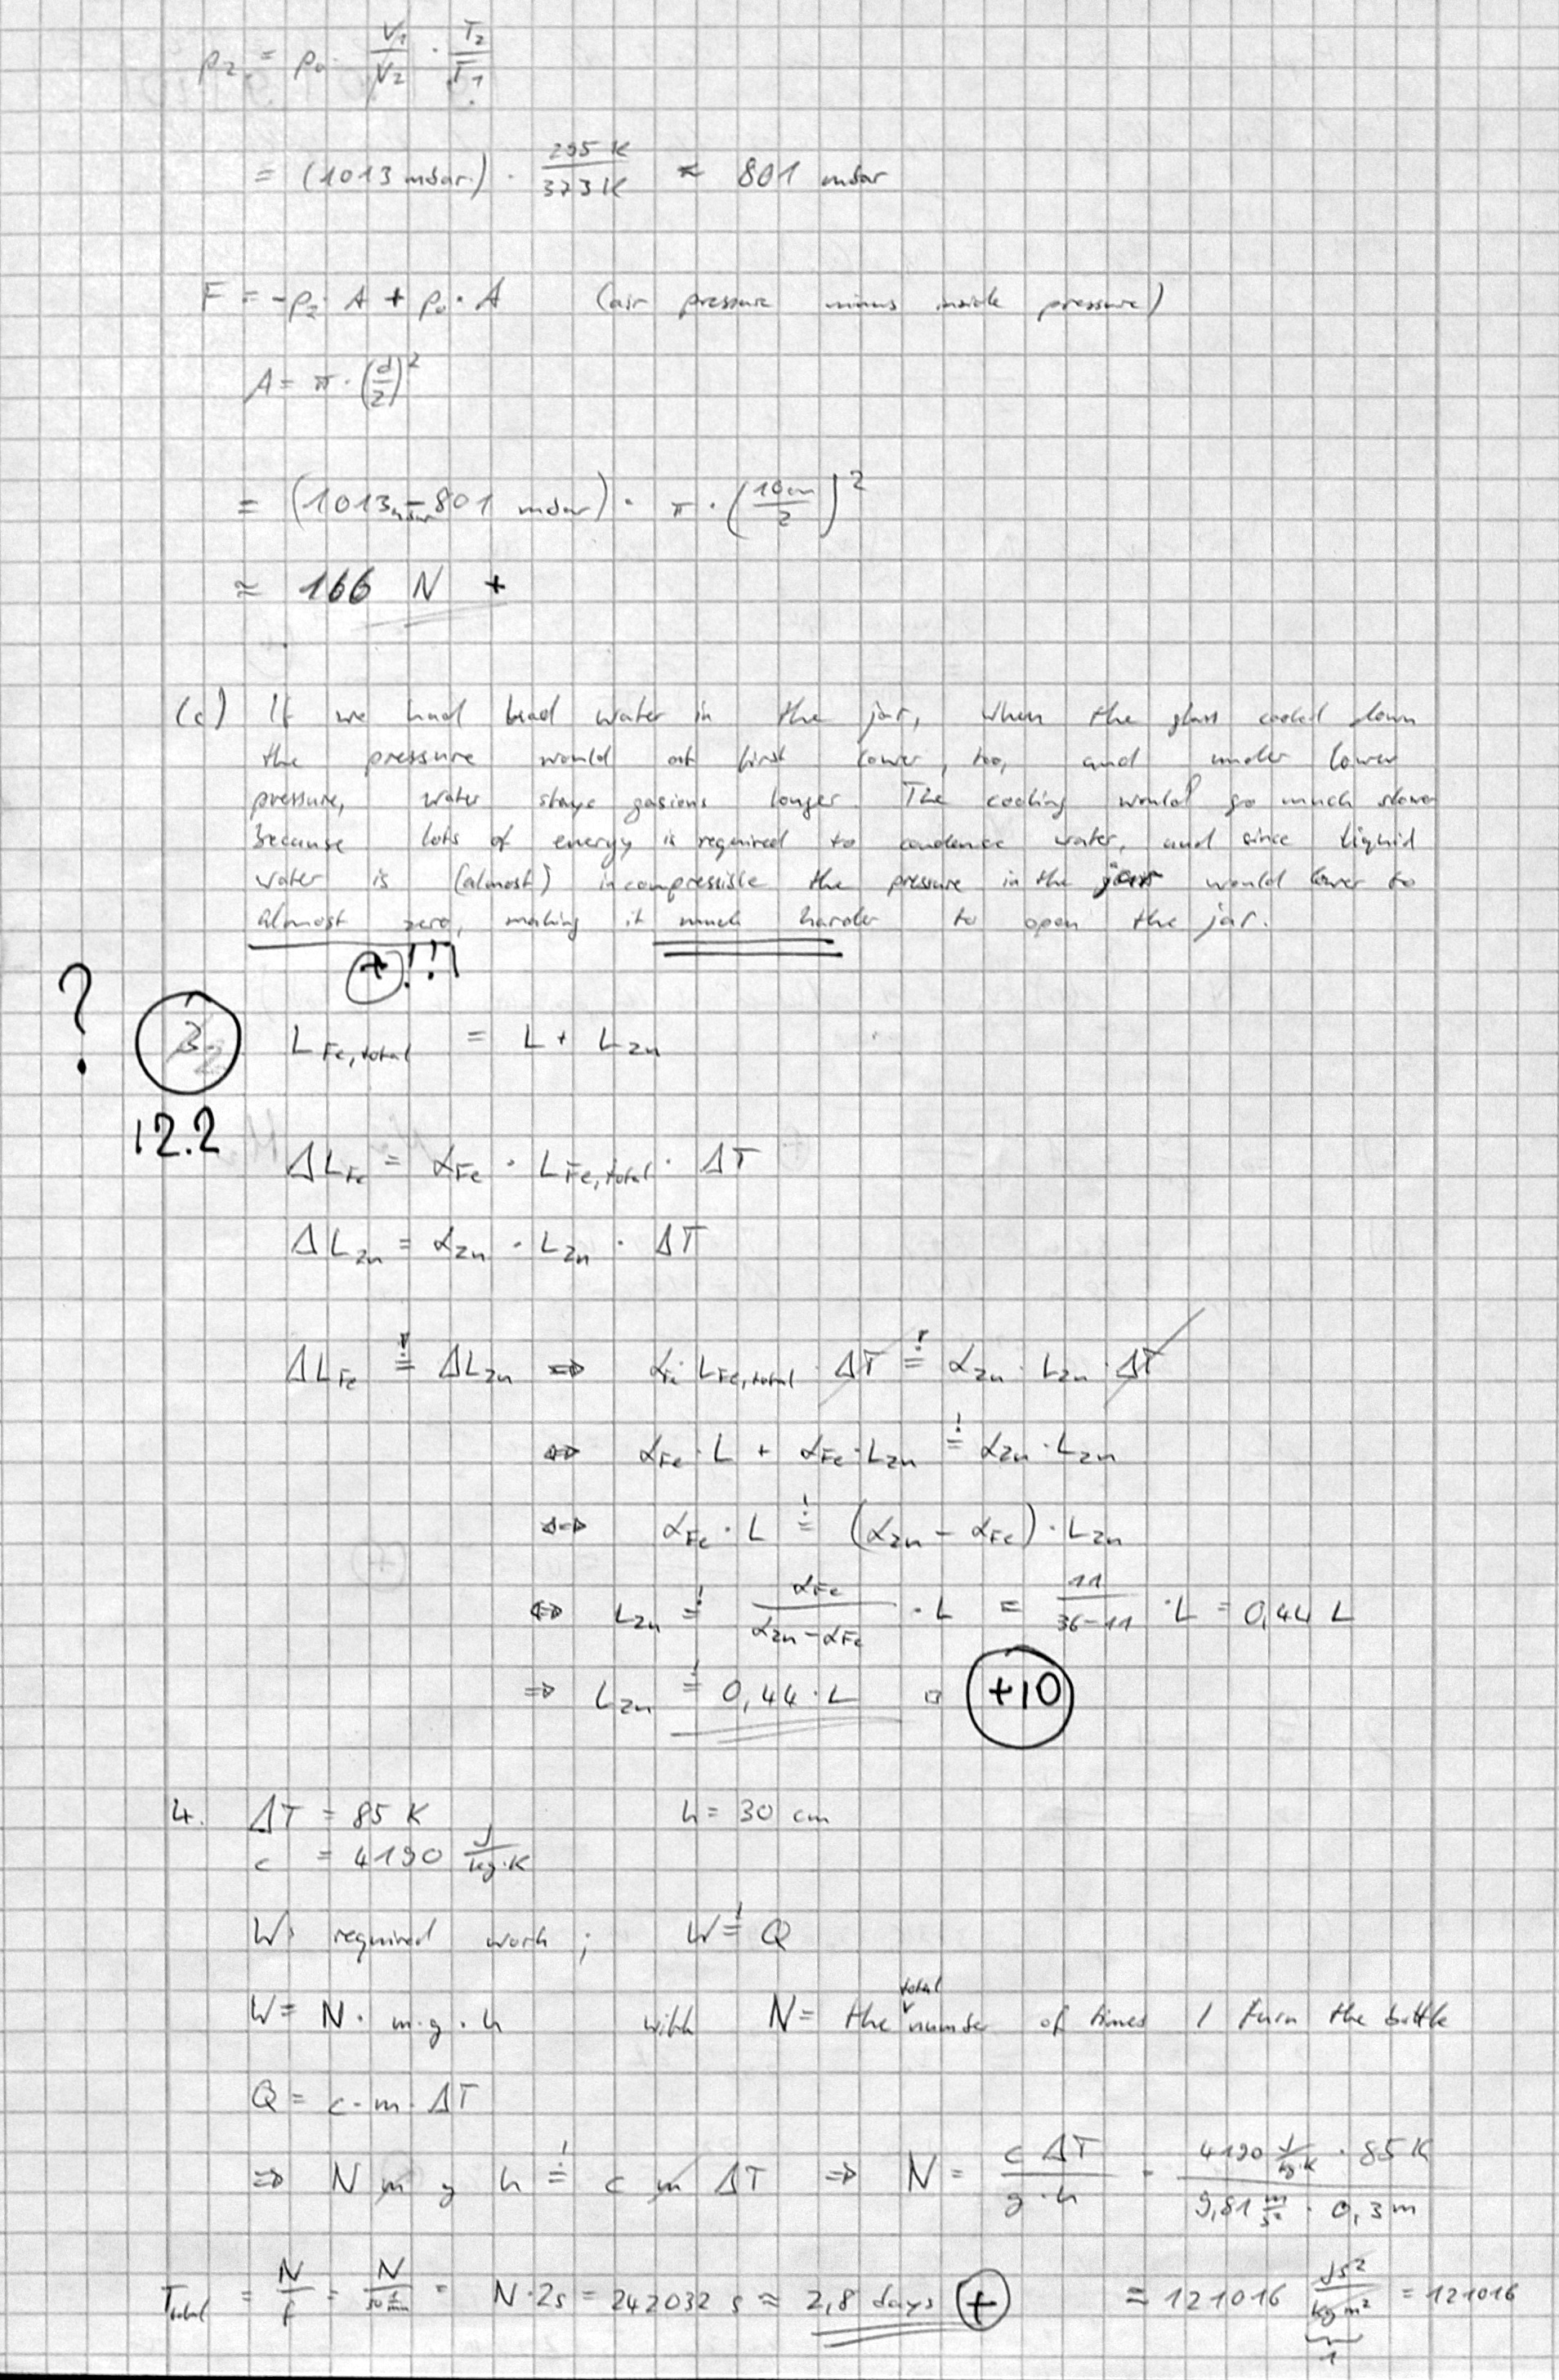 p₂ = p₀ · V₁/V₂ · T₂/T₁
= (1013 mbar) · 295 K/373 K ≈ 801 mbar
F = -p₂ · A + p₀ · A (air pressure minus inside pressure)
A = π · (d/2)²
= (1013 mbar - 801 mbar) · π · (10cm/2)²
≈ 166 N +
(c) If we had had water in the jar, when the glass cooled down
the pressure would at first lower, too, and under lower
pressure, water stays gasious longer. The cooling would go much slower
because lots of energy is required to condence water, and since liquid
water is (almost) incompressible the pressure in the jar would lower to
almost zero, making it much harder to open the jar.
+ !!!
? 3. L_Fe,total = L + L_Zn
12.2
ΔL_Fe = α_Fe · L_Fe,total · ΔT
ΔL_Zn = α_Zn · L_Zn · ΔT
ΔL_Fe =! ΔL_Zn ⇔ α_Fe · L_Fe,total · ΔT =! α_Zn · L_Zn · ΔT
⇔ α_Fe · L + α_Fe · L_Zn =! α_Zn · L_Zn
⇔ α_Fe · L =! (α_Zn - α_Fe) · L_Zn
⇔ L_Zn =! α_Fe/(α_Zn - α_Fe) · L = 11/(36-11) · L = 0,44 L
⇒ L_Zn =! 0,44 · L □ +10
4. ΔT = 85 K h = 30 cm
c = 4190 J/(kg·K)
W: required work; W =! Q
W = N · m·g·h with N = the total number of times I turn the bottle
Q = c·m·ΔT
⇒ N m g h =! c m ΔT ⇒ N = c ΔT/(g·h) = (4190 J/(kg·K) · 85 K)/(9,81 m/s² · 0,3 m)
= 121016 Js²/(kg m²) = 121016
1
T_total = N/f = N/(30 1/min) = N·2s = 242032 s ≈ 2,8 days +